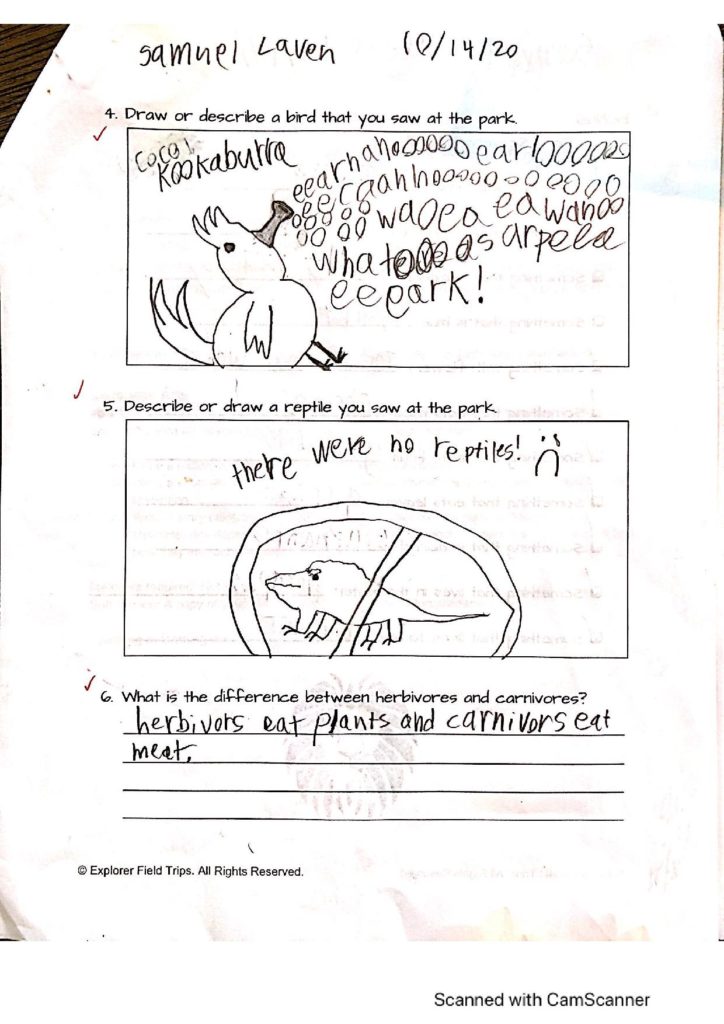 Samuel Laven 10/14/20
4. Draw or describe a bird that you saw at the park.
Coco!
Kookaburra
eearhahooooooo earlooooooo
eeeraahhooooo oo ooooo
ooooo waoea ea wahoo
oo oo
what as arpeea
eeeark!
5. Describe or draw a reptile you saw at the park.
there were no reptiles!
6. What is the difference between herbivores and carnivores?
herbivors eat plants and carnivors eat
meat.
© Explorer Field Trips. All Rights Reserved.
Scanned with CamScanner